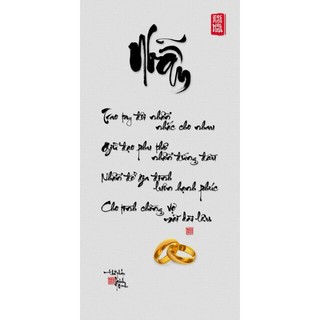 Nhẫn
Trao tay đôi nhẫn
nhắc cho nhau
Giữ đạo phu thê
nhẫn đứng đầu
Nhẫn để gia đình
luôn hạnh phúc
Cho tình chồng vợ
mãi dài lâu